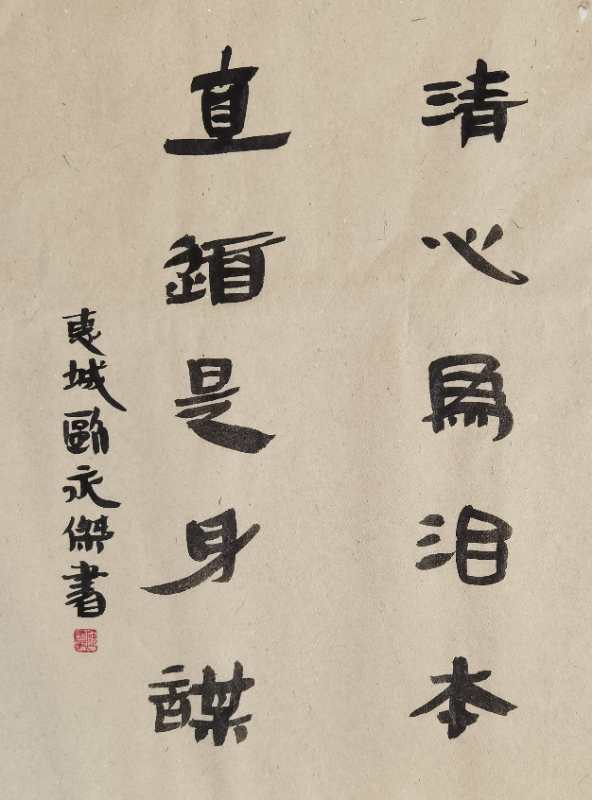 清心為治本
直道是身謀
惠城歐永傑書